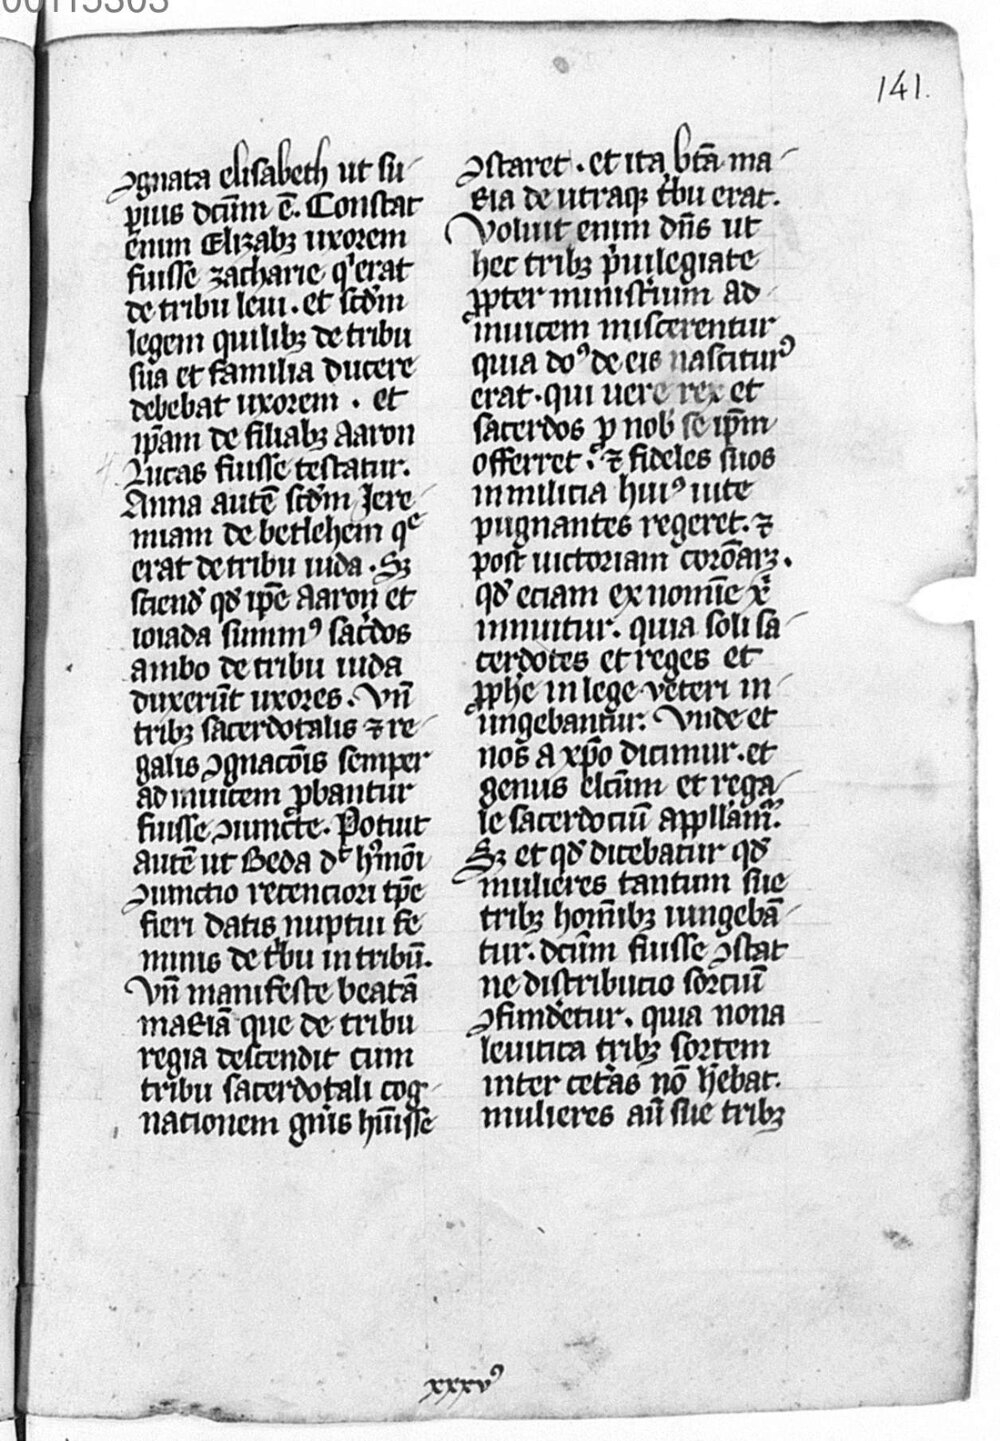 00115303
141.
ꝯgnata elisabeth ut su-
pius dc̄m ē. Constat
enim Elizabꝫ uxorem
fuisse zacharie qͥ erat
de tribu leui. et scd̄m
legem quilibꝫ de tribu
sua et familia ducere
debebat uxorem. et
ip̄am de filiabꝫ aaron
Lucas fuisse testatur.
Anna autē scd̄m Jere-
miam de betlehem qͤ
erat de tribu iuda. Sꝫ
sciend̄ qd̄ ip̄e Aaron et
ioiada summꝰ sac̄dos
ambo de tribu iuda
duxerūt uxores. Vn̄
tribꝫ sacerdotalis ⁊ re-
galis ꝯgnac̄ois semper
ad inuicem ꝓbantur
fuisse ꝯiuncte. Potuit
autē ut Beda dͭ hꝰmōi
ꝯiunctio recenciori tp̄e
fieri datis nuptui fe
minis de tͥbu in tribū.
Vn̄ manifeste beatā
maRiā que de tribu
regia descendit cum
tribu sacerdotali cog-
nationem gn̄is hūisse
ꝯstaret. et ita bt̄ā ma-
Ria de utraqꝫ tͥbu erat.
Voluit enim dn̄s ut
hec tribꝫ pͥuilegiate
ꝓpter ministͥium ad
inuicem miscerentur
quia doꝰ de eis nasciturꝰ
erat. qui uere rex et
sacerdos ꝓ nob̄ se ip̄m
offerret. ⁊ fideles suos
in milicia huiꝰ uite
pugnantes regeret. ⁊
post uictoriam corōarꝫ.
qd̄ eciam ex nomīe xͥ
innuitur. quia soli sa-
cerdotes et reges et
ꝓph̄e in lege veteri in-
ungebantur. Vnde et
nos a xp̄o dicimur. et
genus elc̄m et rega-
le sacerdociū appllamͬ.
Sꝫ et qd̄ dicebatur qd̄
mulieres tantum sue
tribꝫ homī̄bꝫ iungebā-
tur. dc̄m fuisse ꝯstat
ne distributio sorciū
ꝯfundetur. quia nona
leuitica tribꝫ sortem
inter cetͣas nō hēbat.
mulieres aū sue tribꝫ
xxxvꝰ